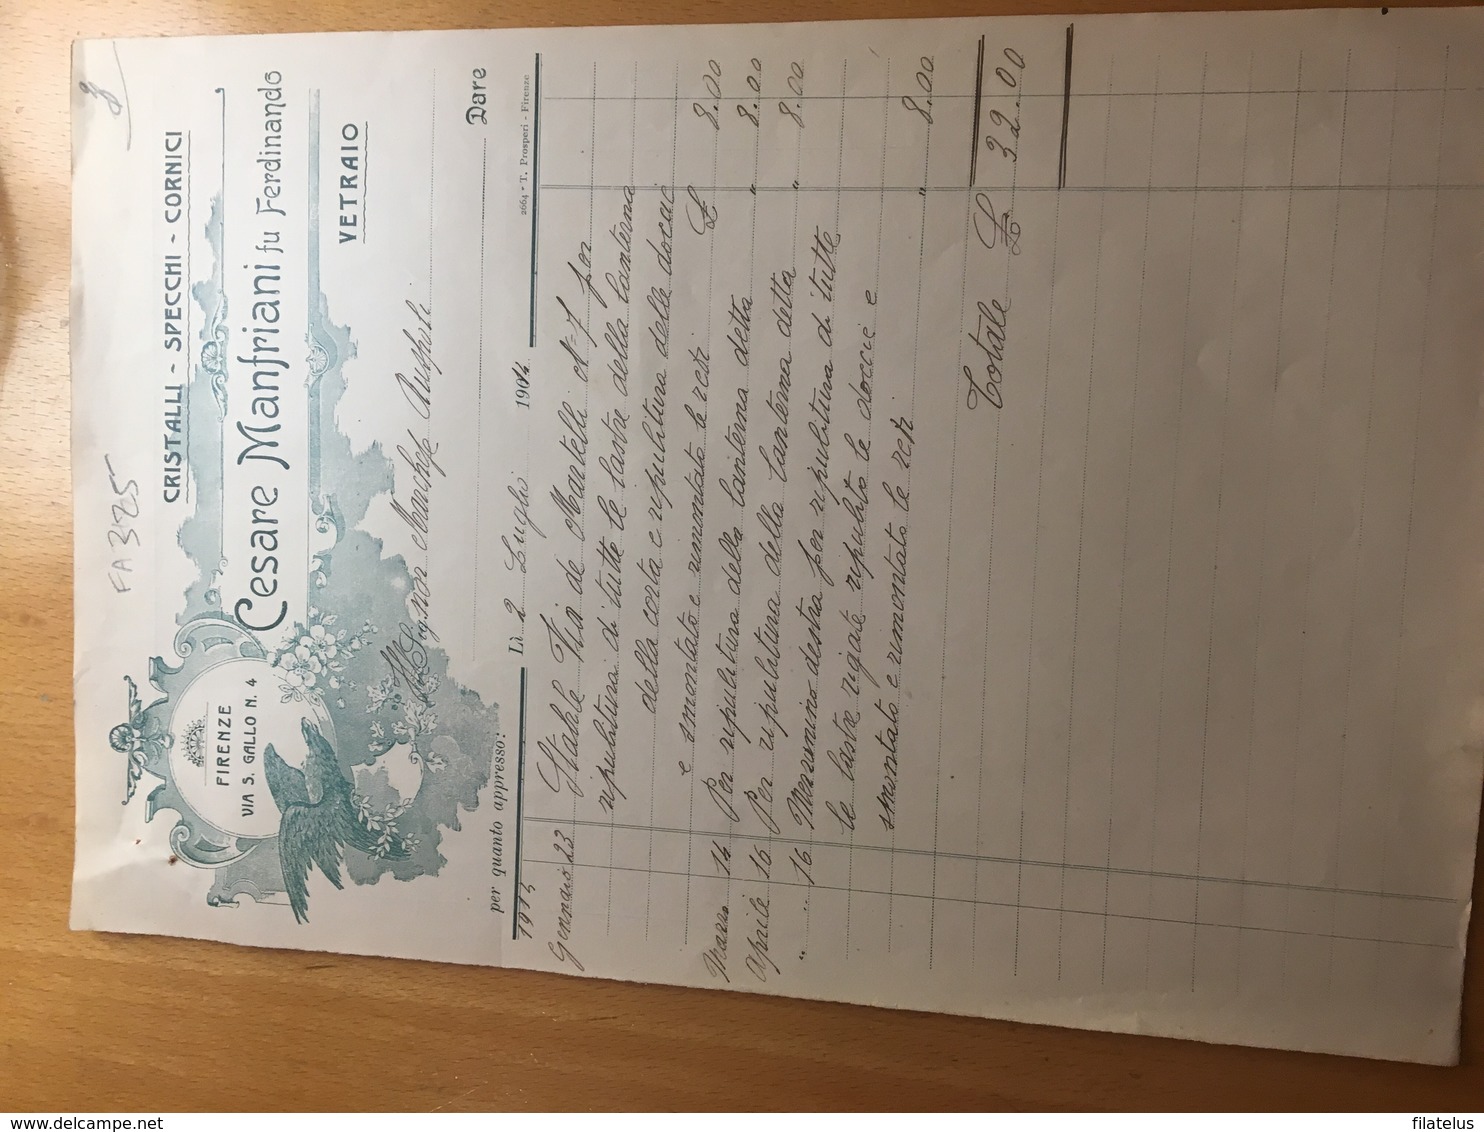 8
FA 325
CRISTALLI - SPECCHI - CORNICI
Cesare Manfriani fu Ferdinando
VETRAIO
FIRENZE
VIA S. GALLO N. 4
Ill. Signor Marchese
Dare
per quanto appresso:
Lì 2 Luglio 1914
2664 - T. Prosperi - Firenze
1914
Gennaio 23 Stabile Via de Martelli N=1 per
ripulitura di tutte le lastre della lanterna
della corta e ripulitura delle doccie
e smontato e rimontato le reti £ 8.00
Marzo 14 Per ripulitura della lanterna detta " 8.00
Aprile 16 Per ripulitura della lanterna detta " 8.00
" 16 Mezzanino destra per ripulitura di tutte
le lastre rigate ripulito le doccie e
smontato e rimontato le reti " 8.00
Totale £ 32.00
filatelus